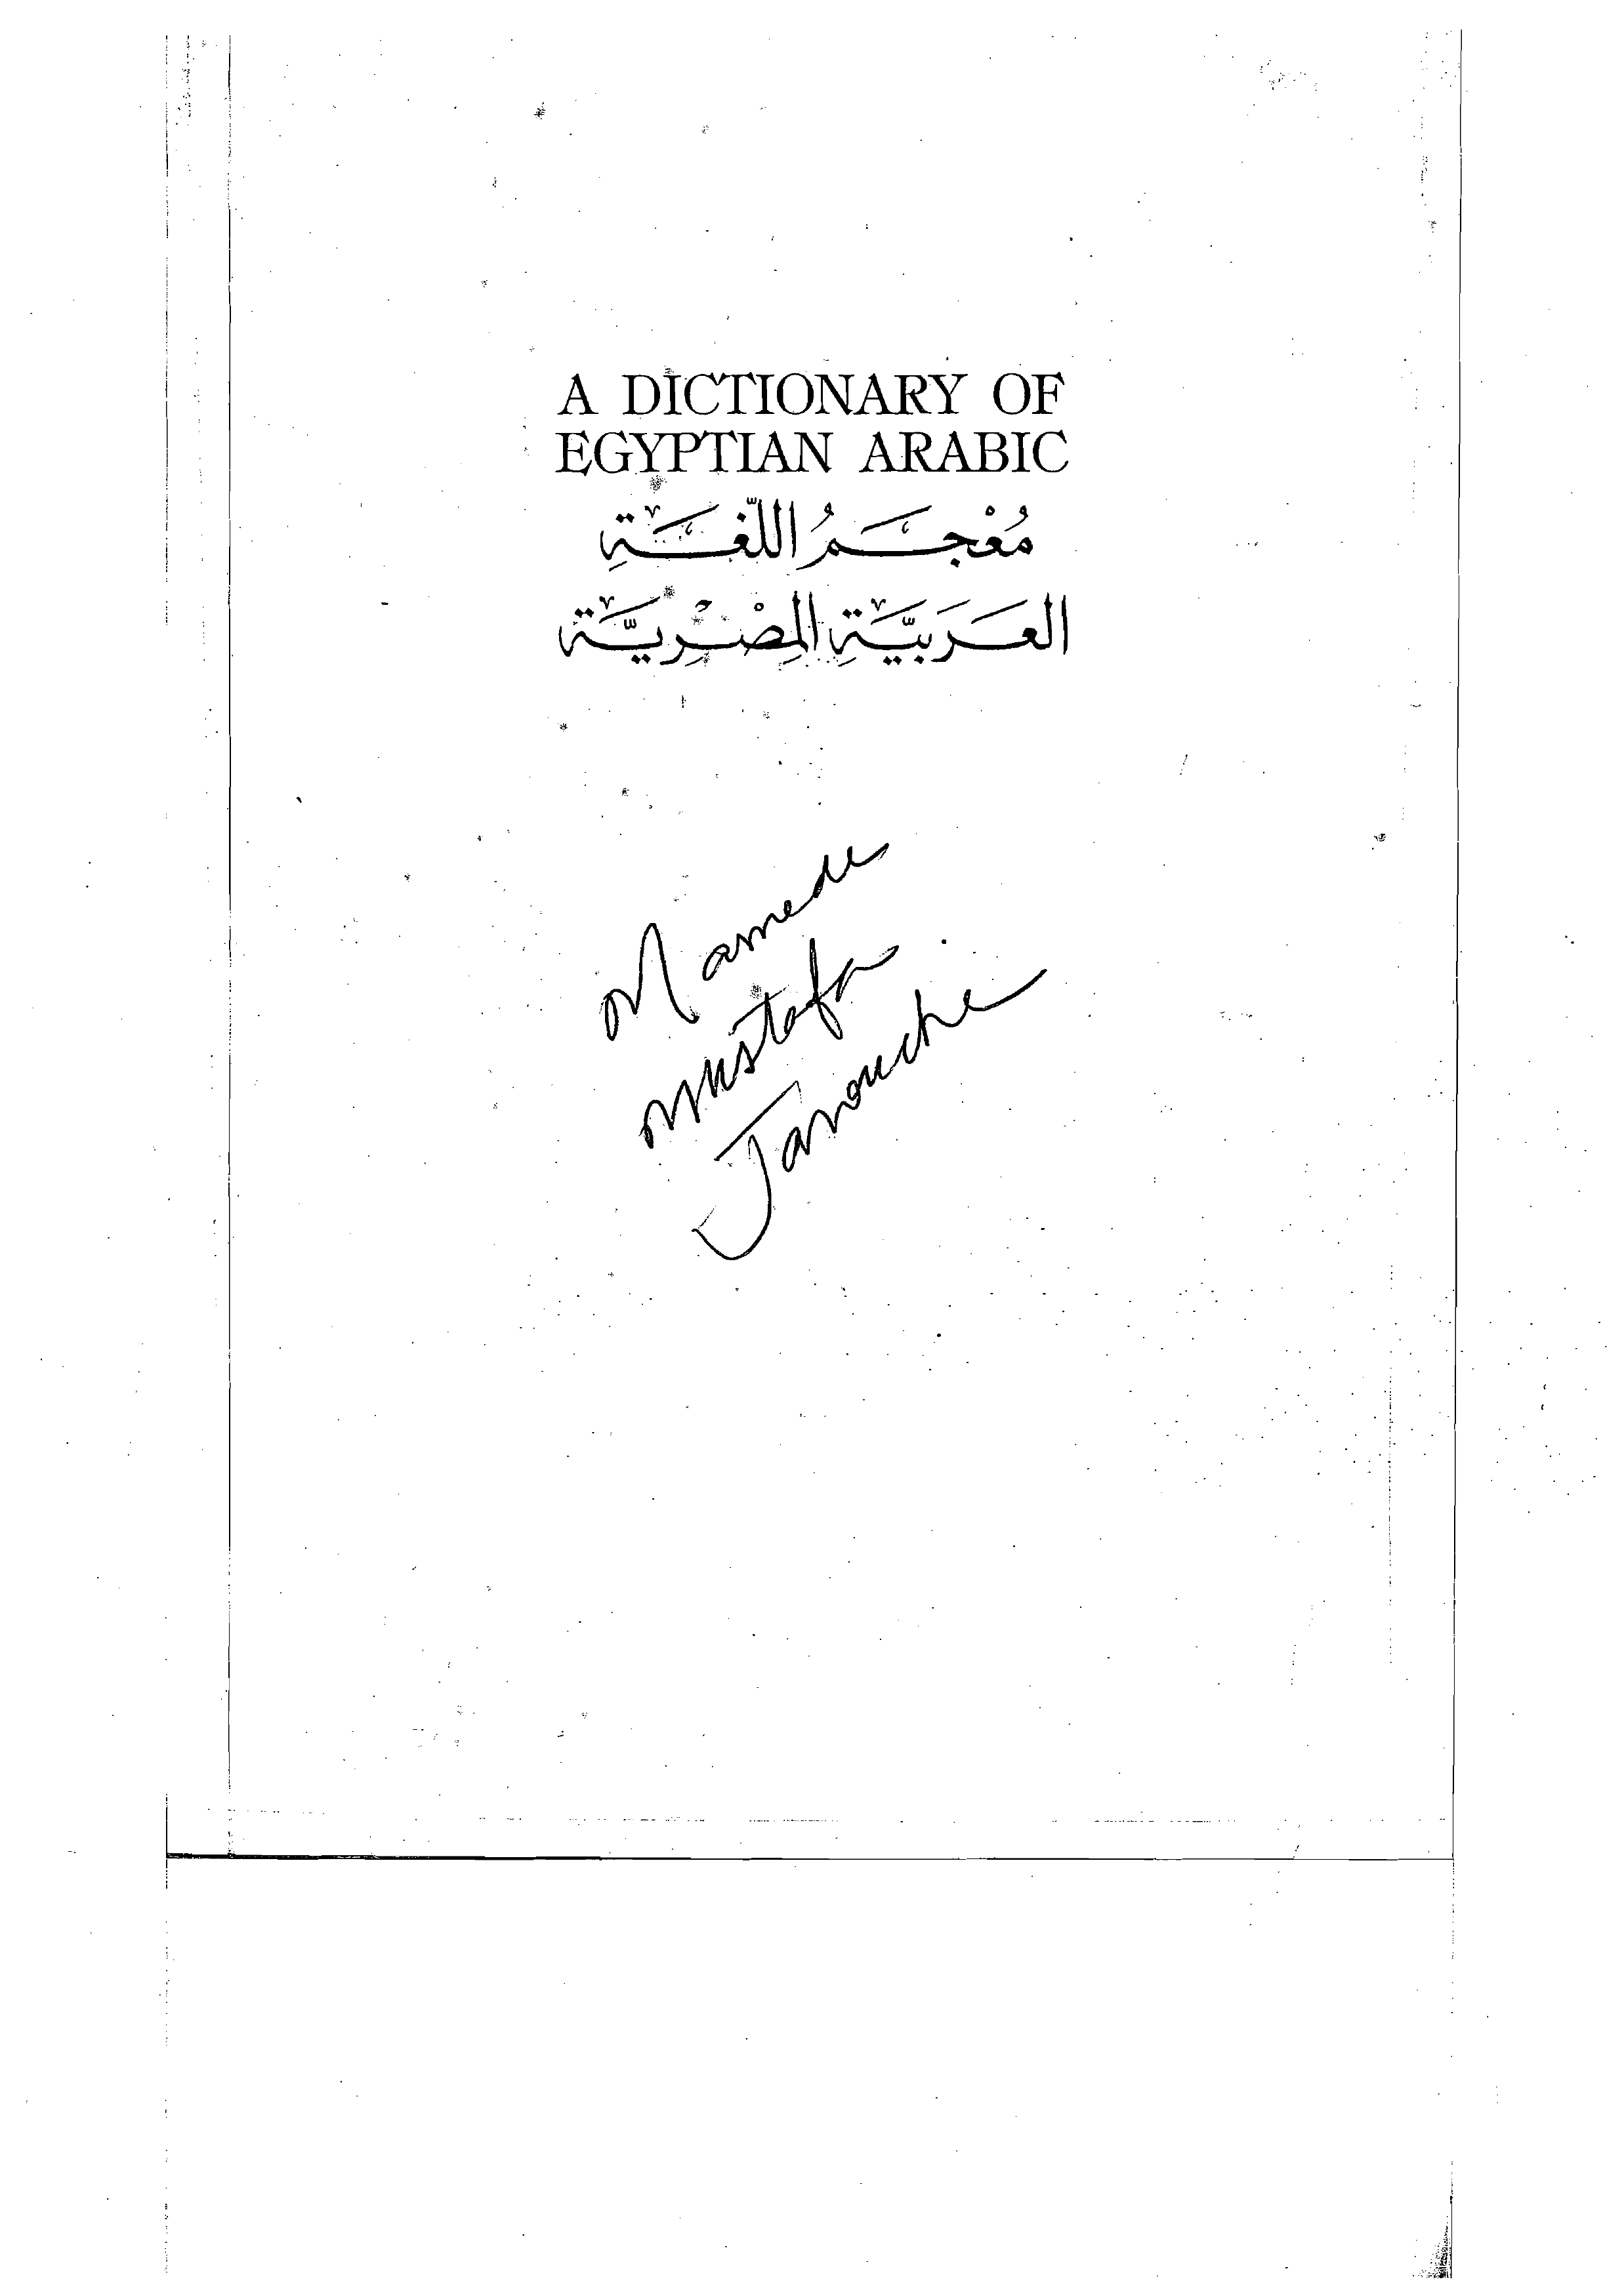 A DICTIONARY OF
EGYPTIAN ARABIC
مُعْجَمُ اللُّغَةِ
العَرَبيَّةِ المِصْرِيَّةِ
Mamede
Mustafa
Jarouche